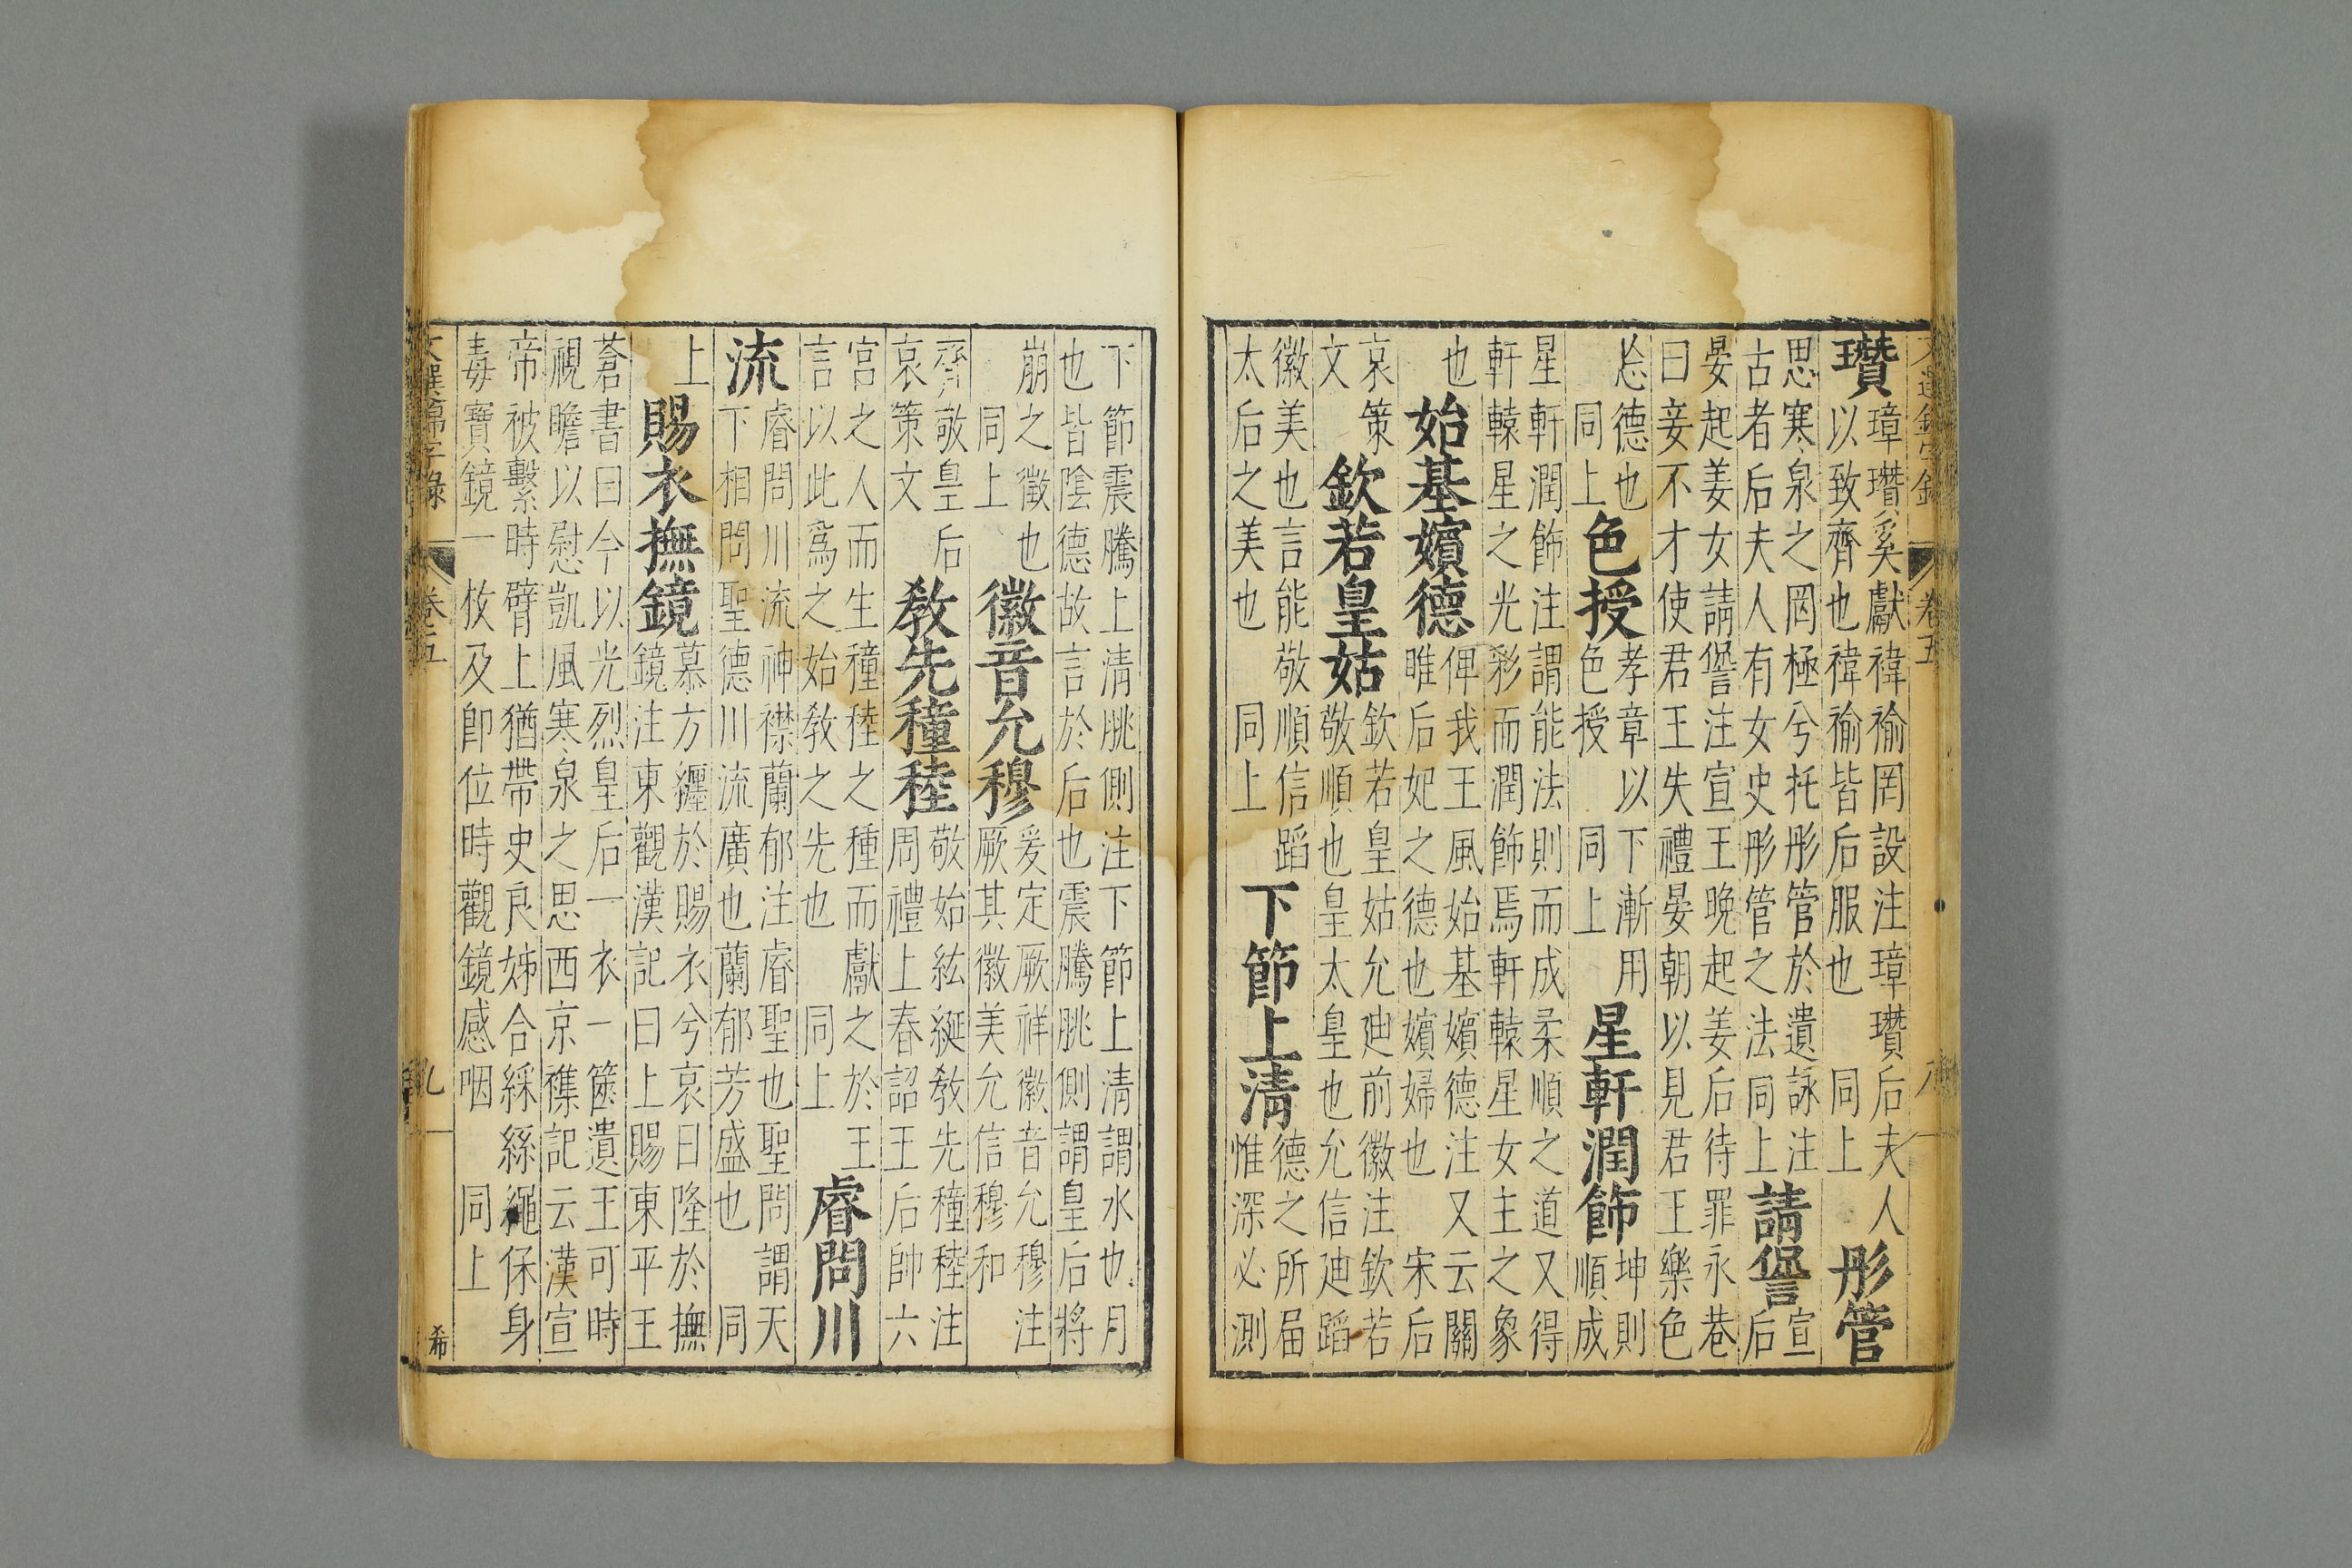 卷五
瓉
璋瓉奚獻褘褕罔設注璋瓉后夫人
以致齊也褘褕皆后服也　同上
彤管
思寒泉之罔極兮托彤管於遺詠注
古者后夫人有女史彤管之法同上
請諐
宣
后
晏起姜女請諐注宣王晚起姜后待罪永巷
曰妾不才使君王失禮晏朝以見君王樂色
忩德也
同上
色授
孝章以下漸用
色授　同上
星軒潤飾
坤則
順成
星軒潤飾注謂能法則而成柔順之道又得
軒轅星之光彩而潤飾焉軒轅星女主之象
也
始基嬪德
俾我王風始基嬪德注又云關
睢后妃之德也嬪婦也　宋后
哀策
文
欽若皇姑
欽若皇姑允廸前徽注欽若
敬順也皇太皇也允信廸蹈
徽美也言能敬順信蹈
太后之美也　同上
下節上淸
德之所届
惟深必測
下節震騰上清朓側注下節上清謂水也月
也皆陰德故言於后也震騰朓側謂皇后將
崩之徵也
同上
徽音允穆
爰定厥祥徽音允穆注
厥其徽美允信穆和
齊敬皇后
哀策文
敎先穜稑
敬始紘綖敎先穜稑注
周禮上春詔王后帥六
宮之人而生穜稑之種而獻之於王
言以此爲之始敎之先也　同上
睿問川
流
睿問川流神襟蘭郁注睿聖也聖問謂天
下相問聖德川流廣也蘭郁芳盛也　同
上
賜衣撫鏡
慕方纒於賜衣兮哀日隆於撫
鏡注東觀漢記曰上賜東平王
蒼書曰今以光烈皇后一衣一篋遺王可時
視瞻以慰凱風寒泉之思西京襍記云漢宣
帝被繫時臂上猶帶史良娣合綵絲繩係身
毒寶鏡一枚及卽位時觀鏡感咽　同上
文選錦字錄　卷五　九　希